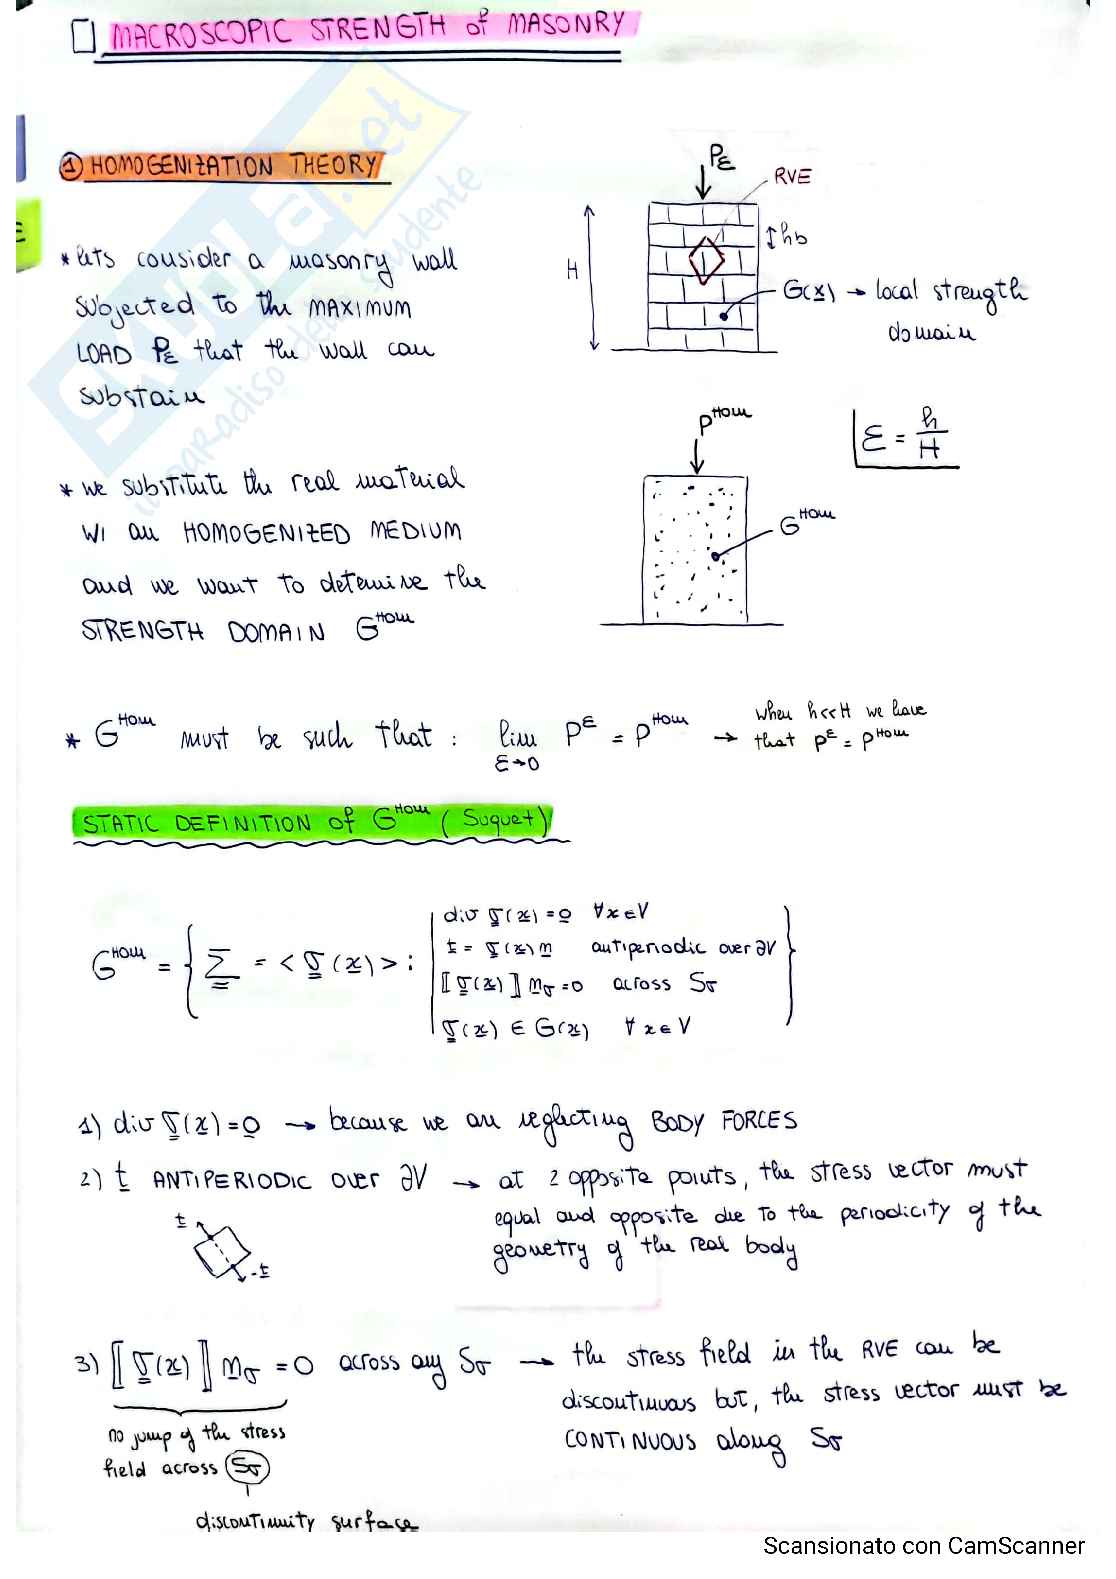 MACROSCOPIC STRENGTH of MASONRY
① HOMOGENIZATION THEORY
Pε
RVE
hb
H
G(x) → local strength
domain
* lets consider a masonry wall
subjected to the MAXIMUM
LOAD Pε that the wall can
substain
P^HOM
ε = h/H
G^HOM
* we substitute the real material
W/ an HOMOGENIZED MEDIUM
and we want to detemine the
STRENGTH DOMAIN G^HOM
* G^HOM must be such that : lim ε→0 P^ε = P^HOM → when h<<H we have
that P^ε = P^HOM
STATIC DEFINITION of G^HOM (Suquet)
G^HOM = { Σ = < σ(x) > :
div σ(x) = 0 ∀x∈V
t = σ(x) n antiperiodic over ∂V
⟦σ(x)⟧ nσ = 0 across Sσ
σ(x) ∈ G(x) ∀x∈V }
1) div σ(x) = 0 → because we are neglecting BODY FORCES
2) t ANTIPERIODIC over ∂V → at 2 opposite points, the stress vector must
equal and opposite due to the periodicity of the
geometry of the real body
t
-t
3) ⟦σ(x)⟧ nσ = 0 across any Sσ → the stress field in the RVE can be
discontinuous but, the stress vector must be
CONTINUOUS along Sσ
no jump of the stress
field across Sσ
discontinuity surface
SKUOLA.net
il paradiso dello studente
Scansionato con CamScanner